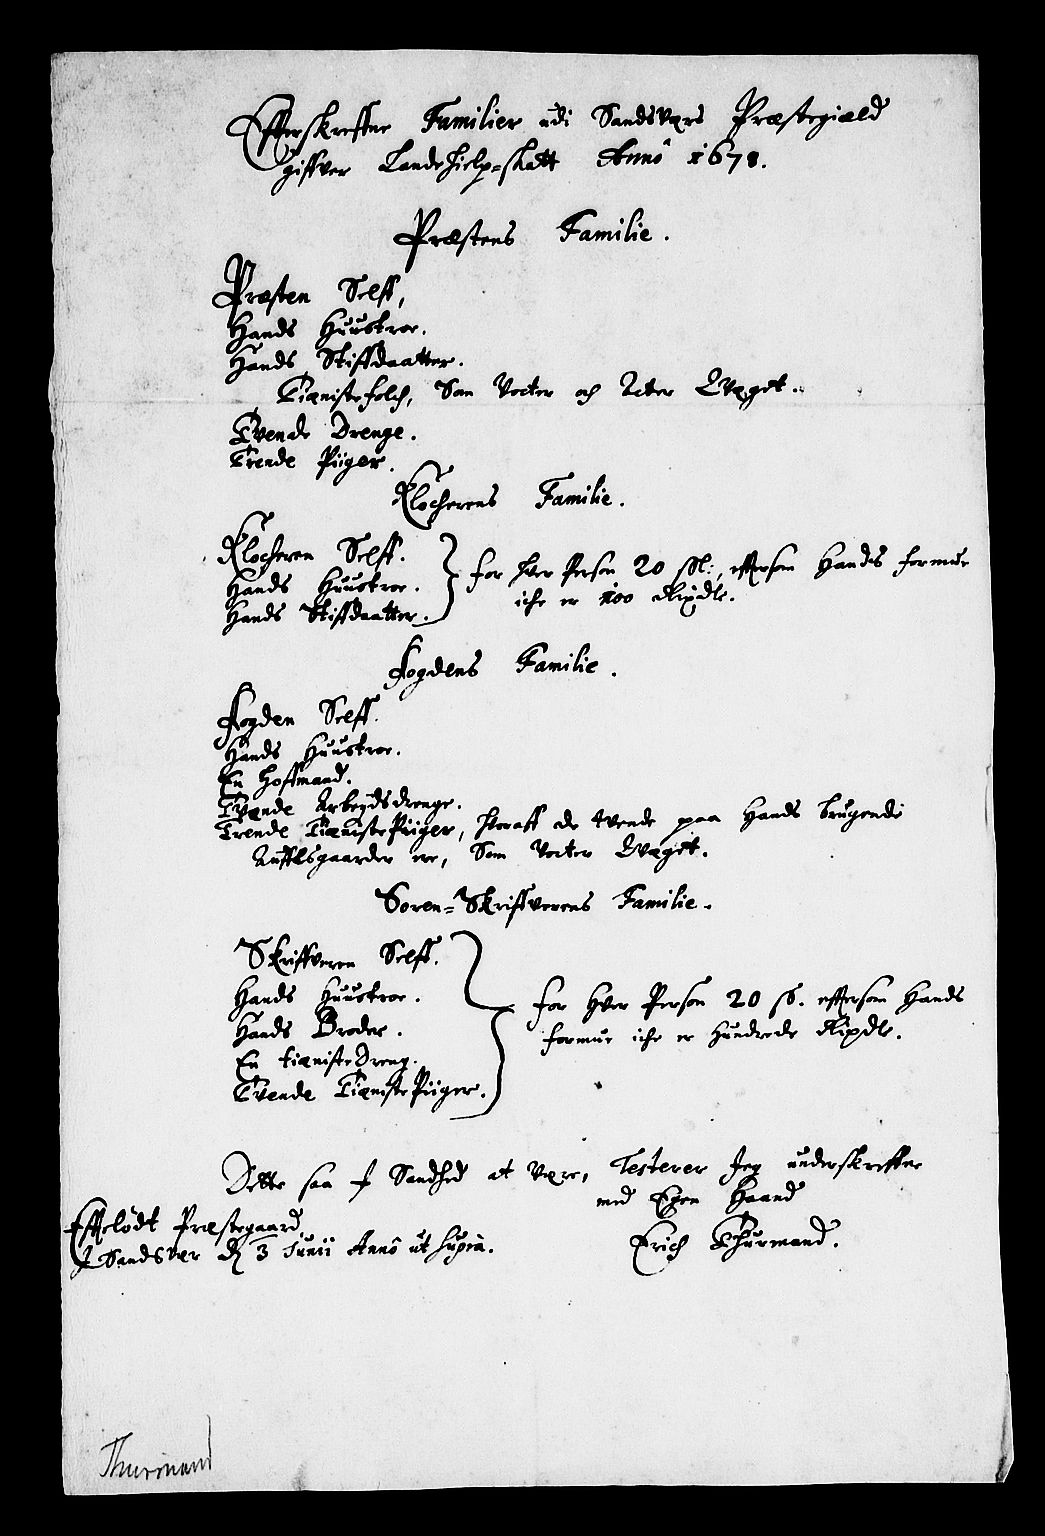 Effterskreffne Familier udi Sandsværs Præstegiæld
giffver Landehielp-skatt Annô 1678.
Præstens Familie.
Præsten Selff,
Hands Huustroe.
Hands Stiffdaatter.
Tiænistefolch, Som Vocter och Acter Qvæget.
Tvende Drenge.
Trende Piiger.
Klocherens Familie.
Klocheren Selff.
Hands Huustroe.
Hands Stiffdaatter.
for hver Person 20 ssl:, effersom Hands formue
iche er 100 Rixdlr.
Fogdens Familie.
Fogden Selff.
Hands Huustroe.
En Hoffmand.
Tvænde Arbeydsdrenge.
Trende TiænistePiiger, Hvoraff de tvende paa Hands brugende
Auffelsgaarder ere, Som Vocter Qvæget.
Soren-Skriffverens Familie.
Skriffveren Selff.
Hands Huustroe.
Hands Broder.
En tiænisteDreng.
Tvende TiænistePiiger.
for hver Person 20 ß. effersom Hands
formue iche er Hundrede Rixdlr.
Dette saa J Sandhed at være, Testerer Jeg underskreffne
med Egen Haand
Efftelødt Præstegaard
J Sandsver d. 3 Junii Annô ut supra.
Erich Thurmand.
Thurmand